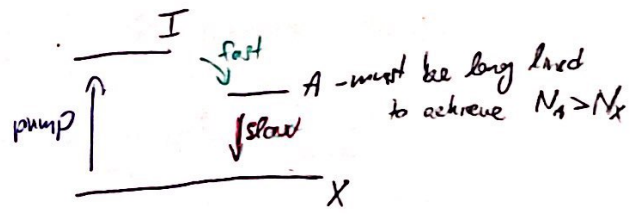 I
fast
A - must be long lived
to achieve N_A > N_X
pump
slow
X